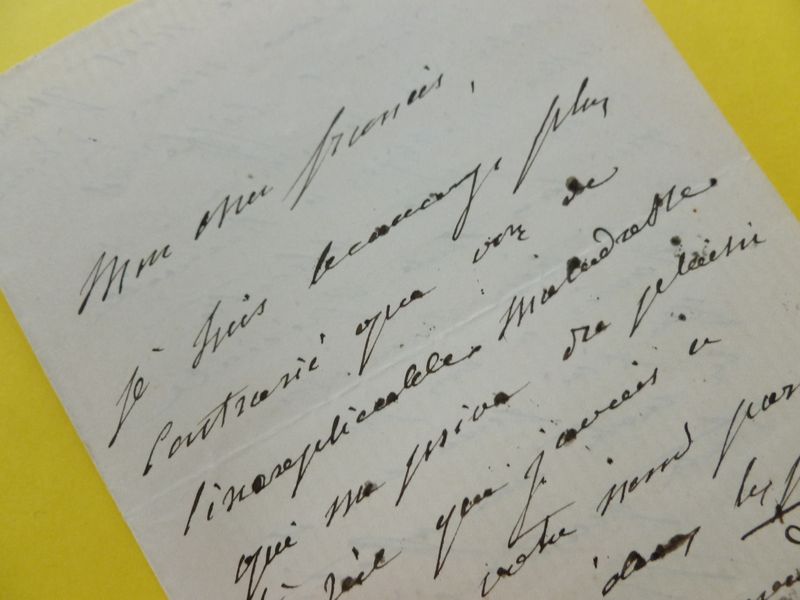 Mon cher francis,
je suis beaucoup plus
contrarié que vous de
l'inexplicable maladresse
qui me prive du plaisir
que j'avais à
votre nom par
dans les